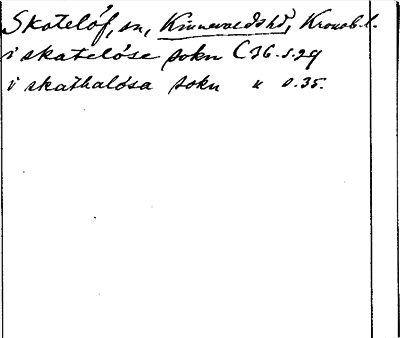 Skatelöf, sn, Kinnevaldshd, Kronob.l.
i skatelöse sokn C 36 s. 29
i skathalösa sokn " s. 35.